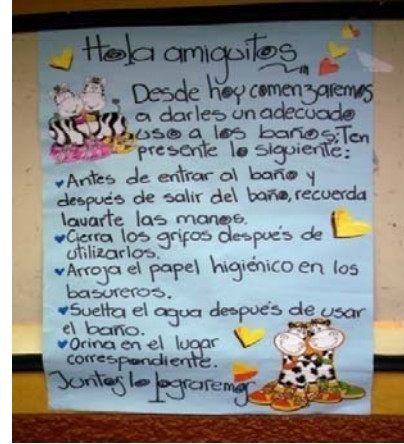 Hola amiguitos
Desde hoy comenzaremos
a darles un adecuado
uso a los baños; Ten
presente lo siguiente:
Antes de entrar al baño y
después de salir del baño, recuerda
lavarte las manos.
Cierra los grifos después de
utilizarlos.
Arroja el papel higiénico en los
basureros.
Suelta el agua después de usar
el baño.
Orina en el lugar
correspondiente.
Juntos lo lograremos